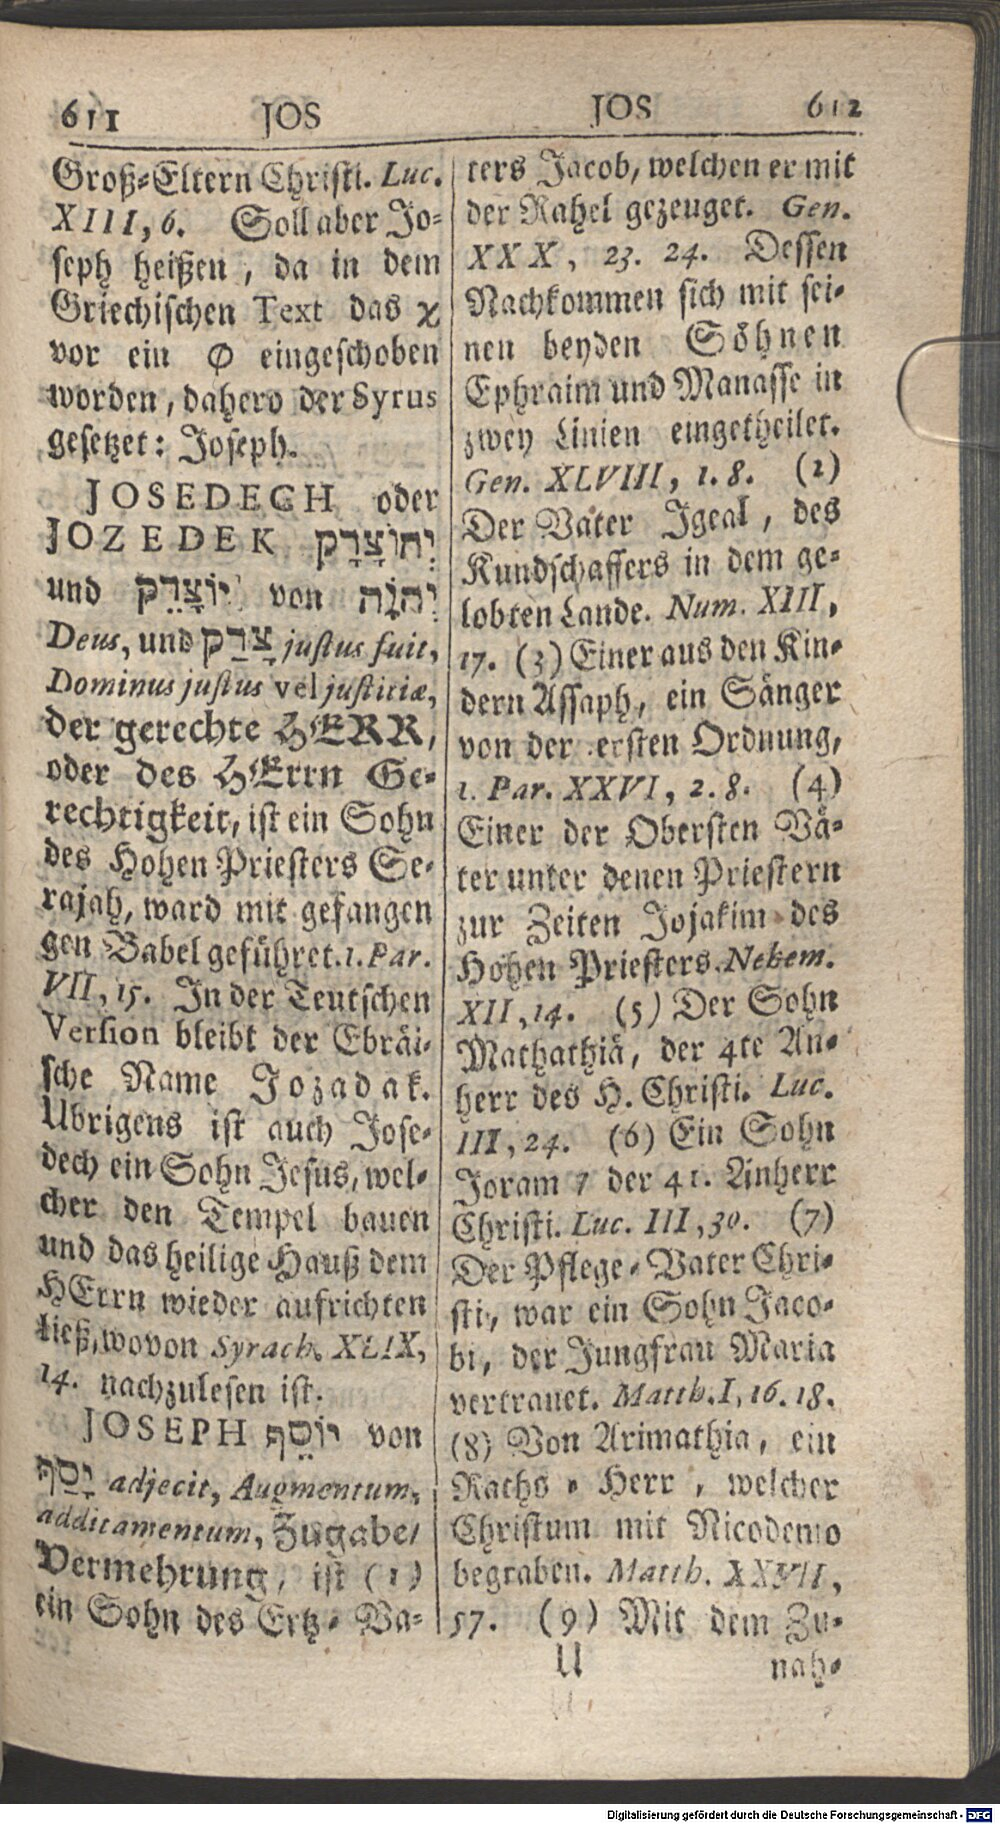 611 JOS
Groß⸗Eltern Christi. Luc.
XIII, 6. Soll aber Jo⸗
seph heißen, da in dem
Griechischen Text das χ
vor ein Φ eingeschoben
worden, dahero der Syrus
gesetzet: Joseph.
JOSEDECH oder
JOZEDEK יְהוֹצָדָק
und יוֹצָדֵק von יְהוָֹה
Deus, und צָדַק justus fuit,
Dominus justus vel justitiæ,
der gerechte HERR,
oder des HErrn Ge⸗
rechtigkeit, ist ein Sohn
des Hohen Priesters Se⸗
rajah, ward mit gefangen
gen Babel geführet. 1. Par.
VII, 15. In der Teutschen
Version bleibt der Ebräi⸗
sche Name Jozadak.
Ubrigens ist auch Jose⸗
dech ein Sohn Jesus, wel⸗
cher den Tempel bauen
und das heilige Hauß dem
HErrn wieder aufrichten
ließ, wovon Syrach. XLIX,
14. nachzulesen ist.
JOSEPH יוֹסֵף von
יָסַף adjecit, Augmentum,
additamentum, Zugabe/
Vermehrung, ist (1)
ein Sohn des Ertz⸗Va⸗
JOS 612
ters Jacob, welchen er mit
der Rahel gezeuget. Gen.
XXX, 23. 24. Dessen
Nachkommen sich mit sei⸗
nen beyden Söhnen
Ephraim und Manasse in
zwey Linien eingetheilet.
Gen. XLVIII, 1. 8. (2)
Der Vater Igeal, des
Kundschaffers in dem ge⸗
lobten Lande. Num. XIII,
17. (3) Einer aus den Kin⸗
dern Assaph, ein Sänger
von der ersten Ordnung,
1. Par. XXVI, 2. 8. (4)
Einer der Obersten Vä⸗
ter unter denen Priestern
zur Zeiten Jojakim des
Hohen Priesters. Nehem.
XII, 14. (5) Der Sohn
Mathathiä, der 4te An⸗
herr des H. Christi. Luc.
III, 24. (6) Ein Sohn
Joram / der 41. Anherr
Christi. Luc. III, 30. (7)
Der Pflege⸗Vater Chri⸗
sti, war ein Sohn Jaco⸗
bi, der Jungfrau Maria
vertrauet. Matth. I, 16. 18.
(8) Von Arimathia, ein
Raths⸗Herr, welcher
Christum mit Nicodemo
begraben. Matth. XXVII,
57. (9) Mit dem Zu⸗
U nah⸗
Digitalisierung gefördert durch die Deutsche Forschungsgemeinschaft - DFG